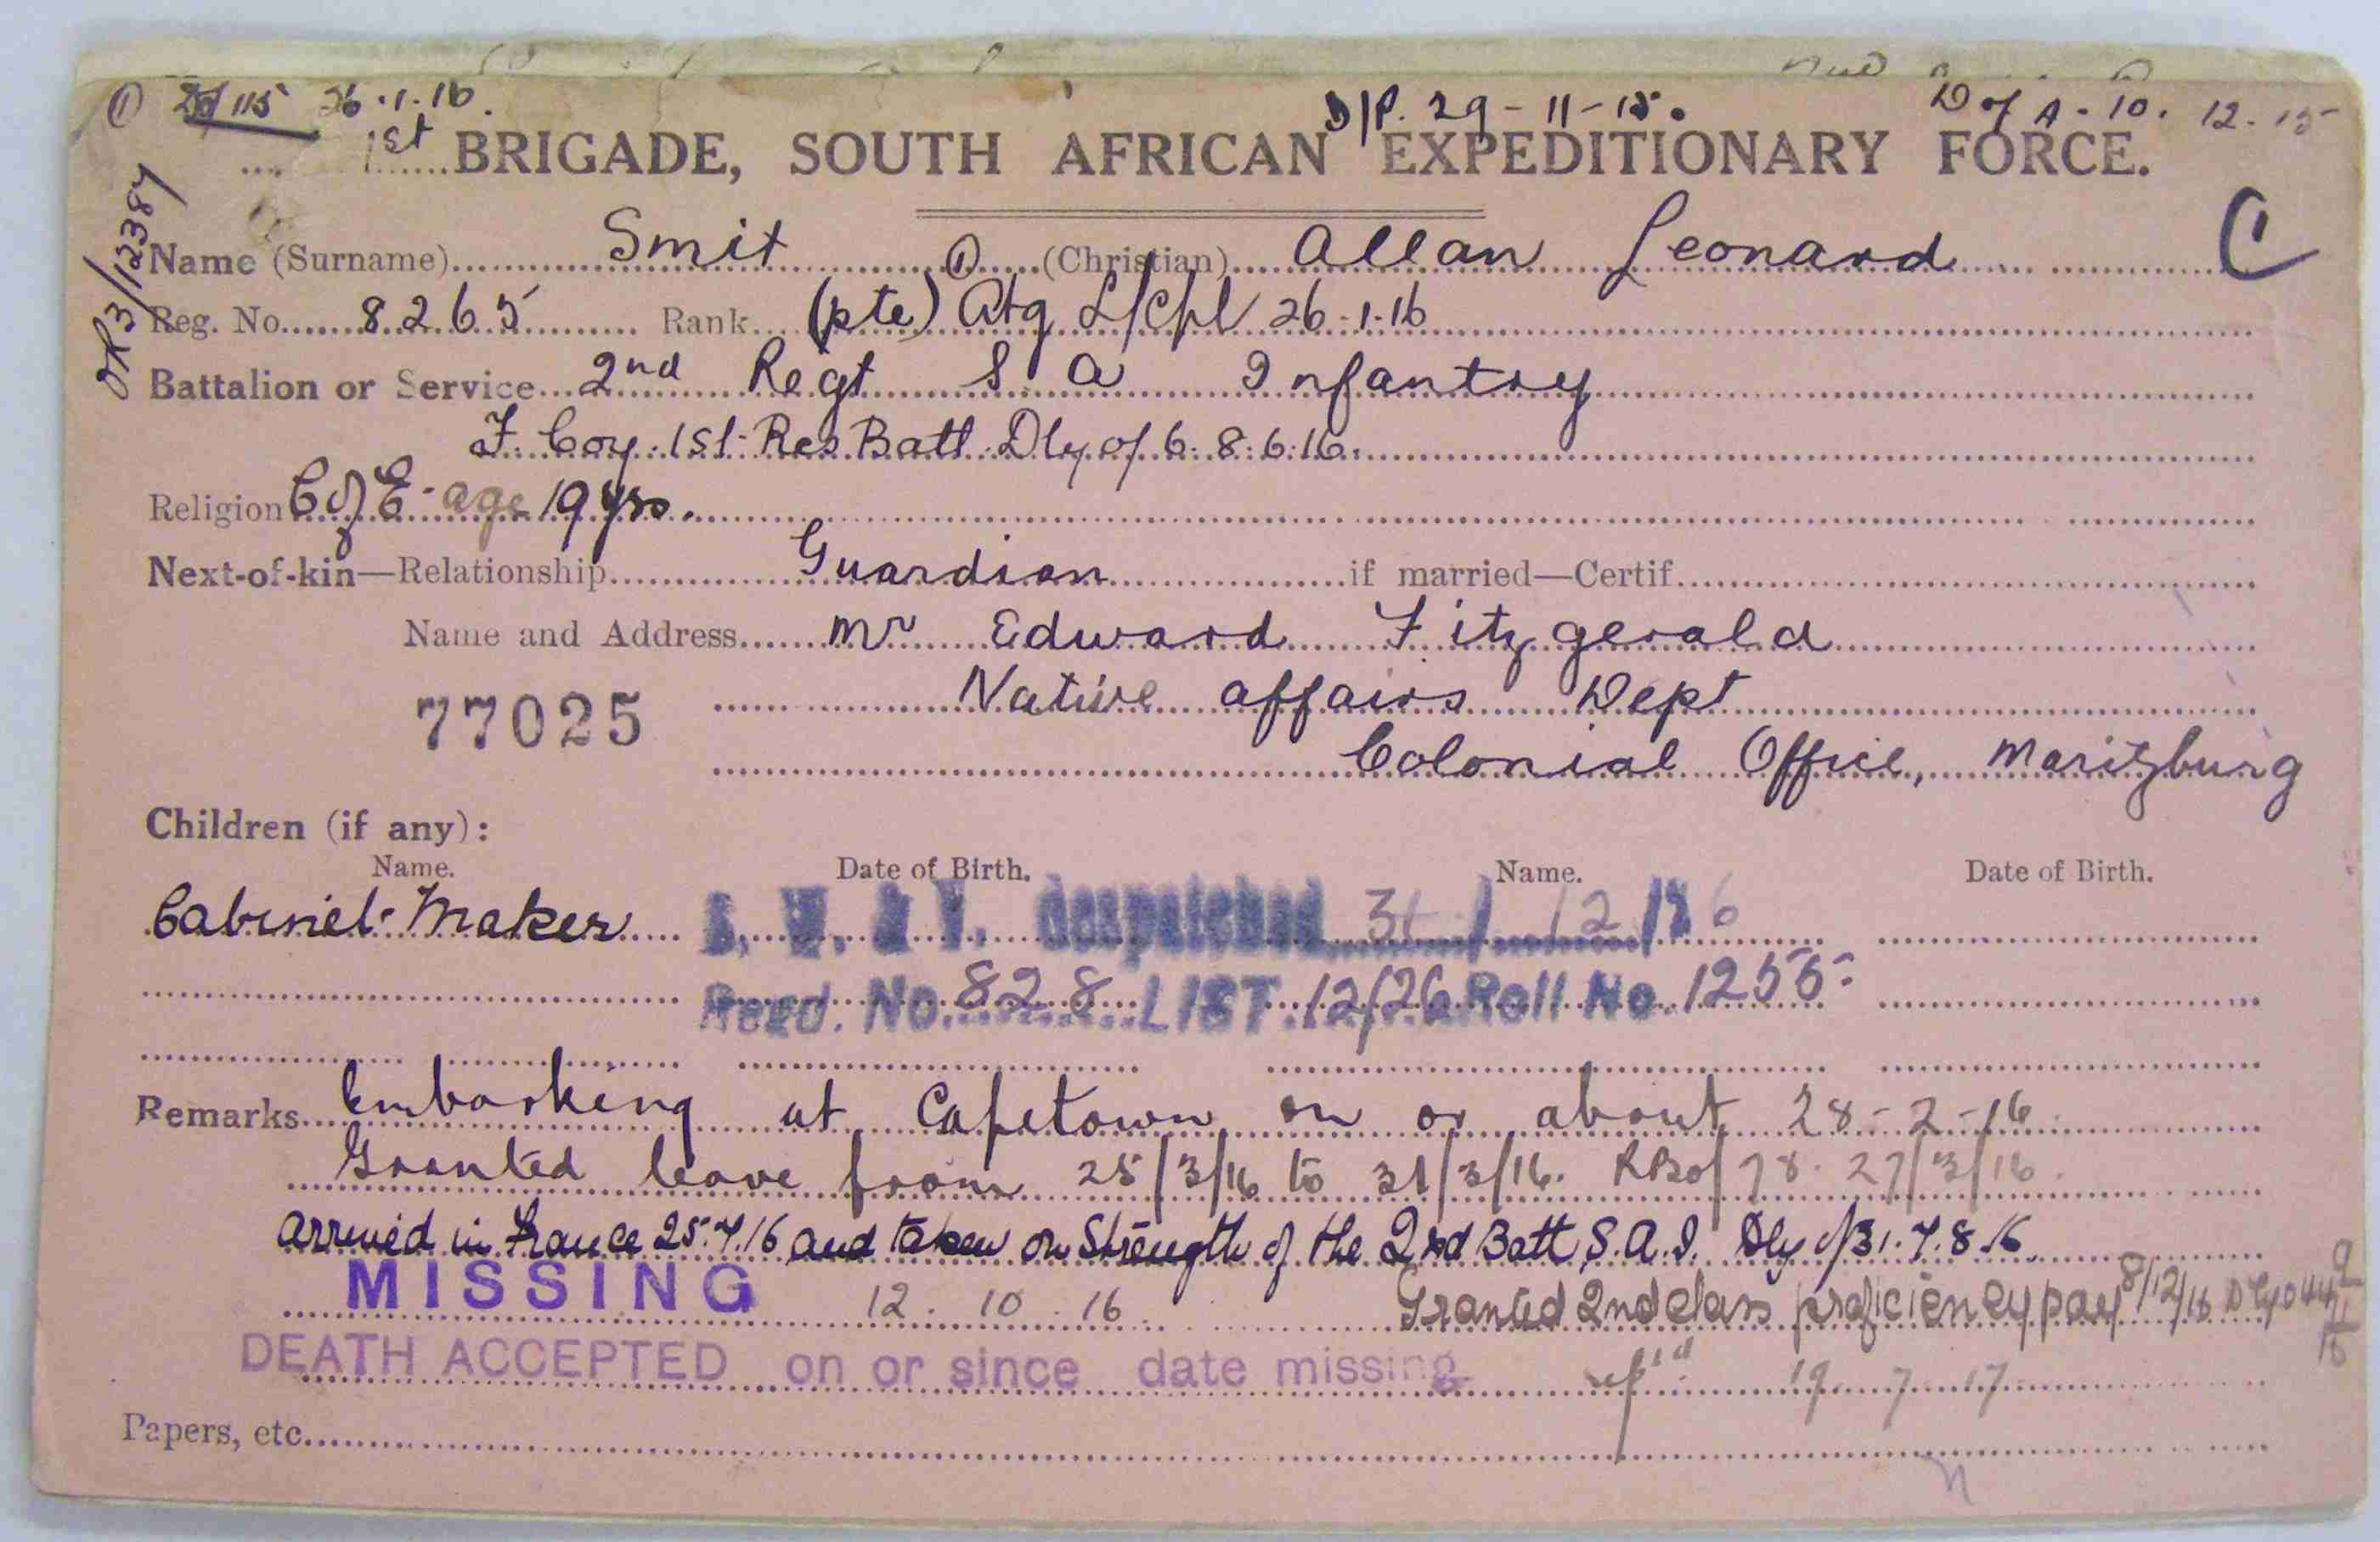 ① 20/115 26.1.16. D/P. 29-11-15. D of A-10.12.15
1st BRIGADE, SOUTH AFRICAN EXPEDITIONARY FORCE.
OR3/12387
C
Name (Surname) Smit ① (Christian) Allan Leonard
Reg. No. 8265 Rank (pte) Atg L/Cpl 26-1-16
Battalion or Service 2nd Regt S A Infantry
F. Coy. 1st Res Batt. Dly of 6. 8.6.16.
Religion C of E - age 19 yrs.
Next-of-kin—Relationship Guardian if married—Certif.
Name and Address Mr Edward Fitzgerald
Native Affairs Dept
77025
Colonial Office, Maritzburg
Children (if any):
Name. Date of Birth. Name. Date of Birth.
Cabinet-Maker despatched 31/12/26
Regd. No. 828 LIST 12/26 Roll No. 1255
Remarks Embarking at Capetown on or about 28-2-16
Granted leave from 25/3/16 to 31/3/16. RBof 78. 27/3/16.
Arrived in France 25.7.16 and taken on Strength of the 2nd Batt S.A.I. Dly of 31.7.8.16
MISSING 12.10.16 Granted 2nd class proficiency pay 8/12/16
DEATH ACCEPTED on or since date missing 19.7.17
Papers, etc.